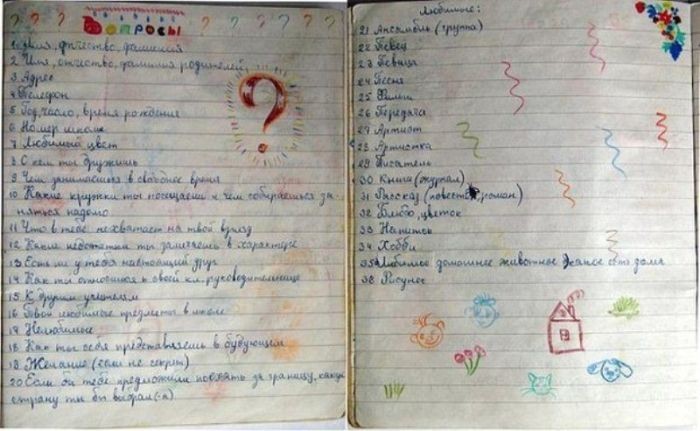 Вопросы
1. Имя, отчество, фамилия
2. Имя, отчество, фамилия родителей
3 Адрес
4 Телефон
5 Год, число, время рождения
6 Номер школы
7 Любимый цвет
8 С кем ты дружишь
9 Чем занимаешься в свободное время
10 Какие кружки ты посещаеш и чем собираешься за
няться надолго
11 Что в тебе не хватает на твой взгляд
12 Какие недостатки ты замечаешь в характере
13 Есть ли у тебя настоящий друг
14 Как ты относишься к своей кл. руководительнице
15 К другим учителям
16 Твои любимые предметы в школе
17 Нелюбимые
18 Как ты себя представляешь в будующем
18 Желание (если не секрет)
20 Если бы тебе предложили поехать за границу, какую
страну ты бы выбрал(-а)
Любимые:
21 Ансамбль (группа)
22 Певец
23 Певица
24 Песня
25 Фильм
26 Передача
27 Артист
28 Артистка
29 Писатель
30 Книга (журнал)
31 Рассказ (повесть, роман)
32 Блюдо, цветок
33 Напиток
34 Хобби
35 Любимое домашнее животное какое есть дома
36 Рисунок